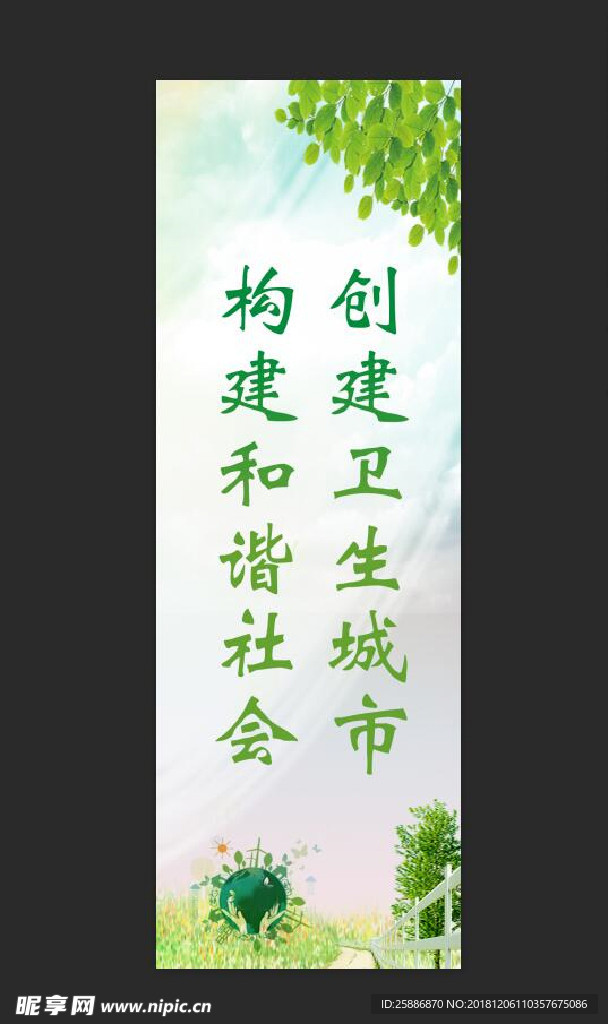 创建卫生城市
构建和谐社会
昵享网 www.nipic.cn
ID:25886870 NO:20181206110357675086